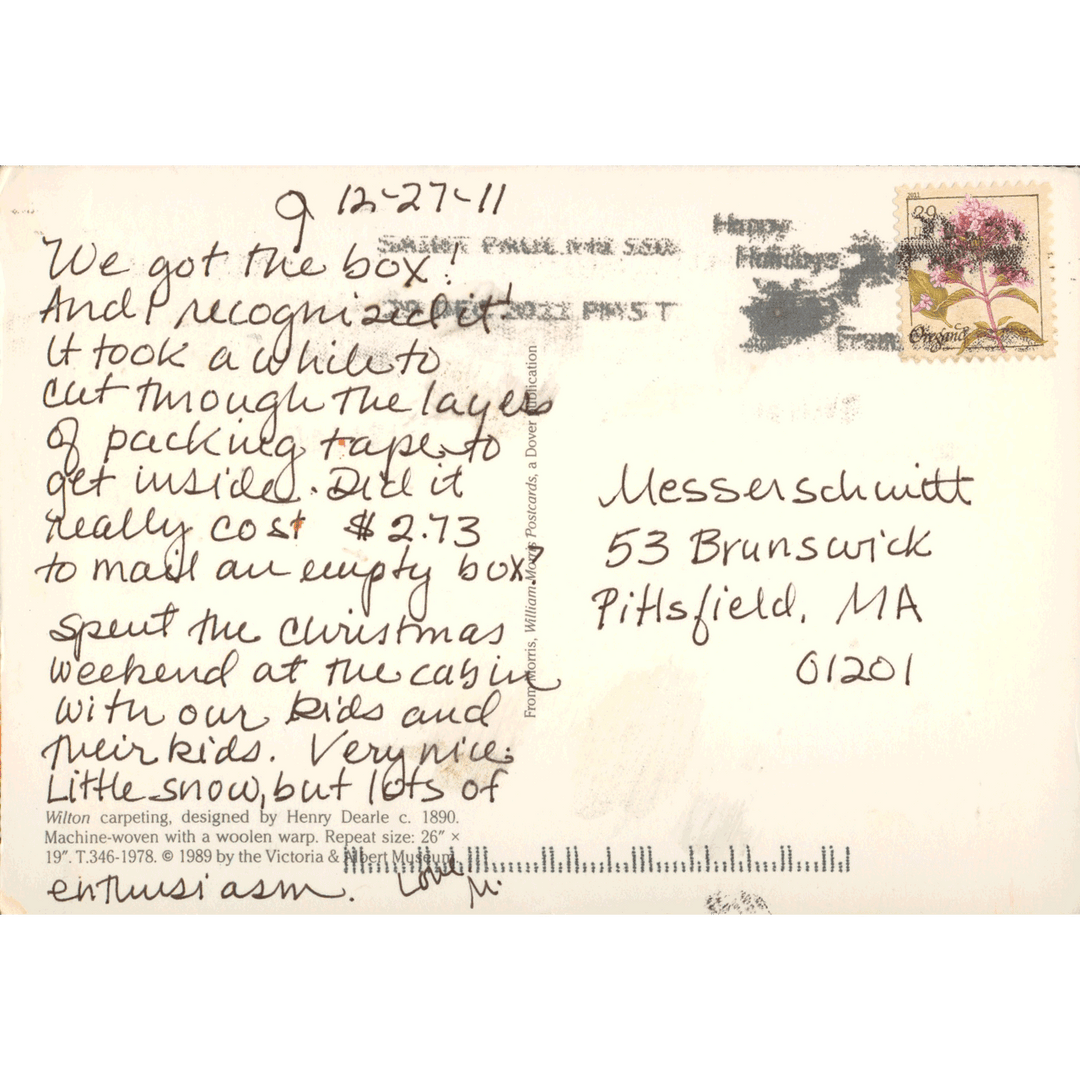 9 12-27-11
We got the box!
And I recognized it!
It took a while to
cut through the layers
of packing tape to
get inside. Did it
really cost $2.73
to mail an empty box?
Spent the Christmas
weekend at the cabin
with our kids and
their kids. Very nice.
Little snow, but lots of
enthusiasm. Love
M.
Wilton carpeting, designed by Henry Dearle c. 1890.
Machine-woven with a woolen warp. Repeat size: 26″ ×
19″. T.346-1978. © 1989 by the Victoria & Albert Museum.
From Morris, William Morris Postcards, a Dover Publication
SAINT PAUL MN 550
2011 PM 5 T
Happy
Holidays
From
2011
29
Oregano
Messerschmitt
53 Brunswick
Pittsfield, MA
01201